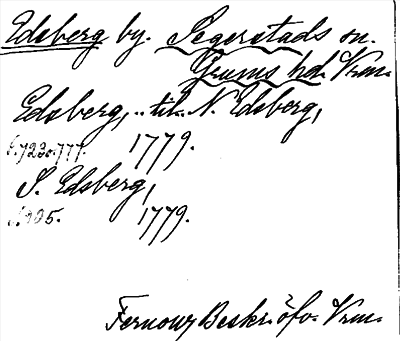 Edsberg by. Segerstads sn.
Grums hd. Vrm.
Edsberg, .. til N. Edsberg,
S. 723 o. 777. 1779.
S. Edsberg,
1779.
Fernow, Beskr. öfv. Vrm.